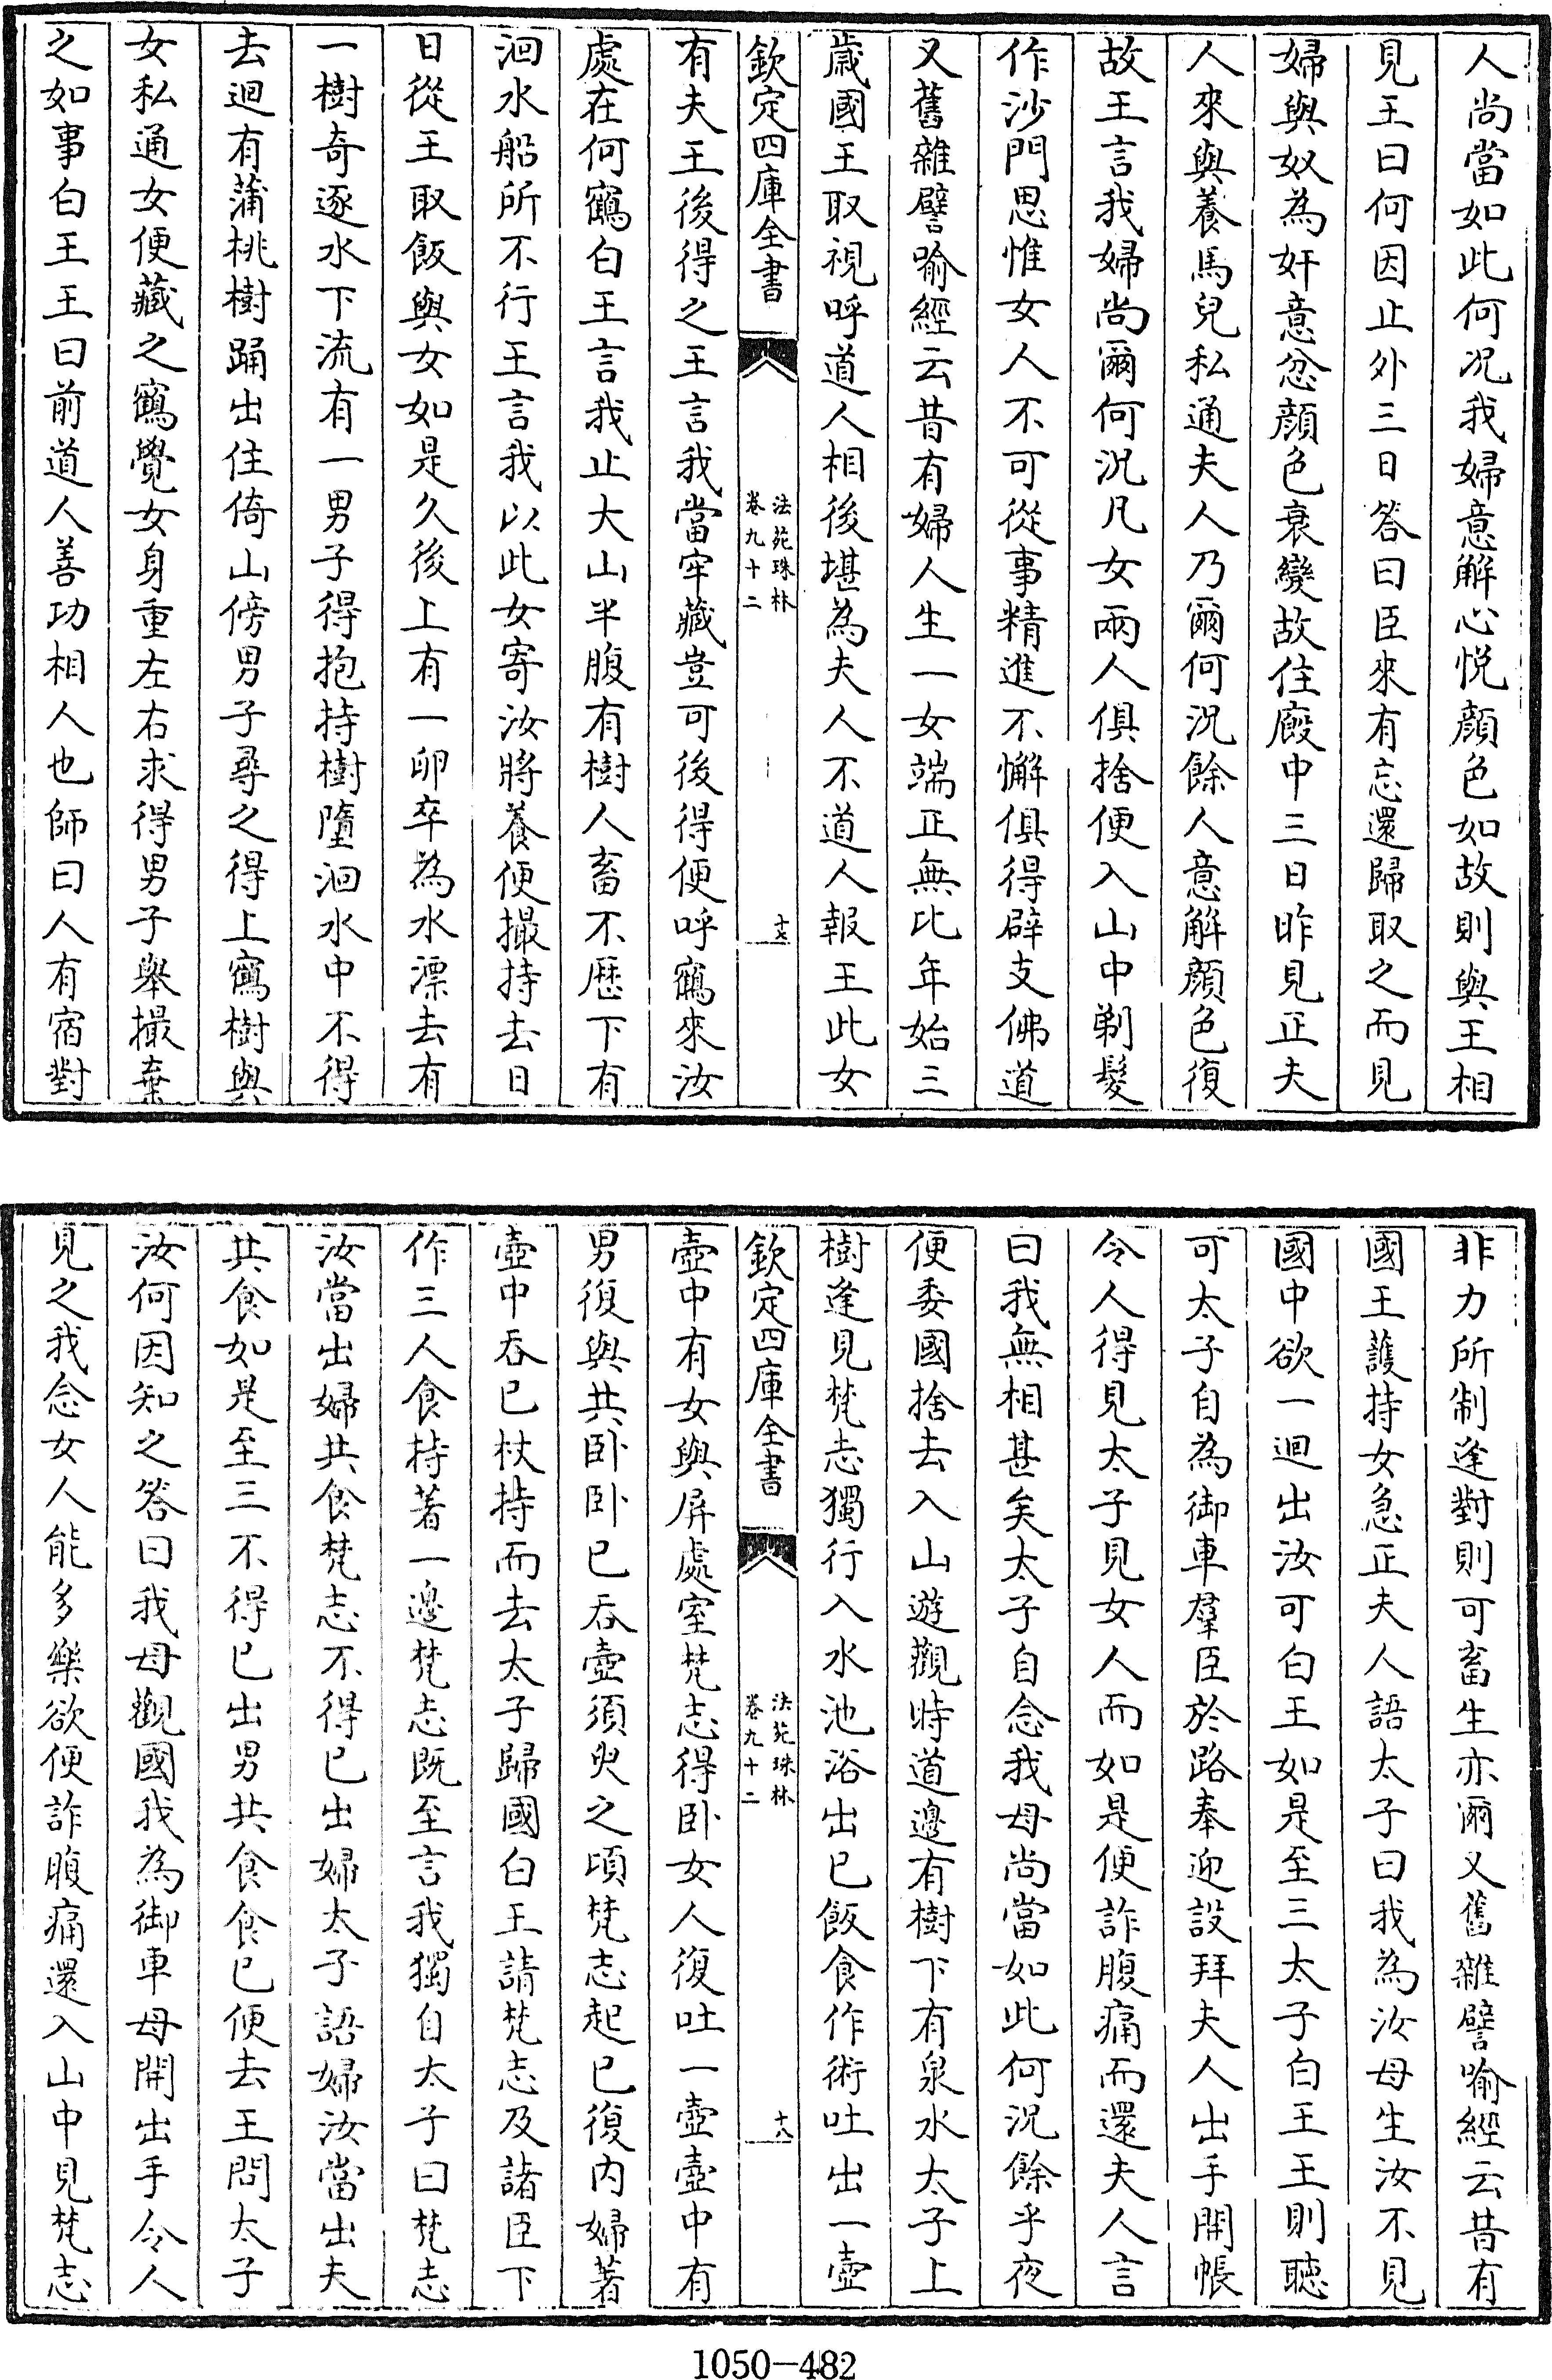 人尚當如此何况我婦意解心悦顔色如故則與王相
見王曰何因止外三日答曰臣來有忘還歸取之而見
婦與奴為奸意忿顔色衰變故住廄中三日昨見正夫
人來與養馬兒私通夫人乃爾何況餘人意解顔色復
故王言我婦尚爾何況凡女兩人俱捨便入山中剃髮
作沙門思惟女人不可從事精進不懈俱得辟支佛道
又舊雜譬喻經云昔有婦人生一女端正無比年始三
歲國王取視呼道人相後堪為夫人不道人報王此女
欽定四庫全書
法苑珠林
卷九十二
十七
有夫王後得之王言我當牢藏豈可後得便呼鶴來汝
處在何鶴白王言我止大山半腹有樹人畜不歷下有
洄水船所不行王言我以此女寄汝將養便撮持去日
日從王取飯與女如是久後上有一卵卒為水漂去有
一樹奇逐水下流有一男子得抱持樹墮洄水中不得
去迴有蒲桃樹踊出住倚山傍男子尋之得上鶴樹與
女私通女便藏之鶴覺女身重左右求得男子舉撮棄
之如事白王王曰前道人善功相人也師曰人有宿對
非力所制逢對則可畜生亦爾又舊雜譬喻經云昔有
國王護持女急正夫人語太子曰我為汝母生汝不見
國中欲一迴出汝可白王如是至三太子白王王則聽
可太子自為御車羣臣於路奉迎設拜夫人出手開帳
令人得見太子見女人而如是便詐腹痛而還夫人言
曰我無相甚矣太子自念我母尚當如此何況餘乎夜
便委國捨去入山遊觀時道邊有樹下有泉水太子上
樹逢見梵志獨行入水池浴出已飯食作術吐出一壺
欽定四庫全書
法苑珠林
卷九十二
十八
壺中有女與屏處室梵志得卧女人復吐一壺壺中有
男復與共卧卧已吞壺須臾之頃梵志起已復内婦著
壺中吞已杖持而去太子歸國白王請梵志及諸臣下
作三人食持著一邊梵志既至言我獨自太子曰梵志
汝當出婦共食梵志不得已出婦太子語婦汝當出夫
共食如是至三不得已出男共食食已便去王問太子
汝何因知之答曰我母觀國我為御車母開出手令人
見之我念女人能多樂欲便詐腹痛還入山中見梵志
1050-482